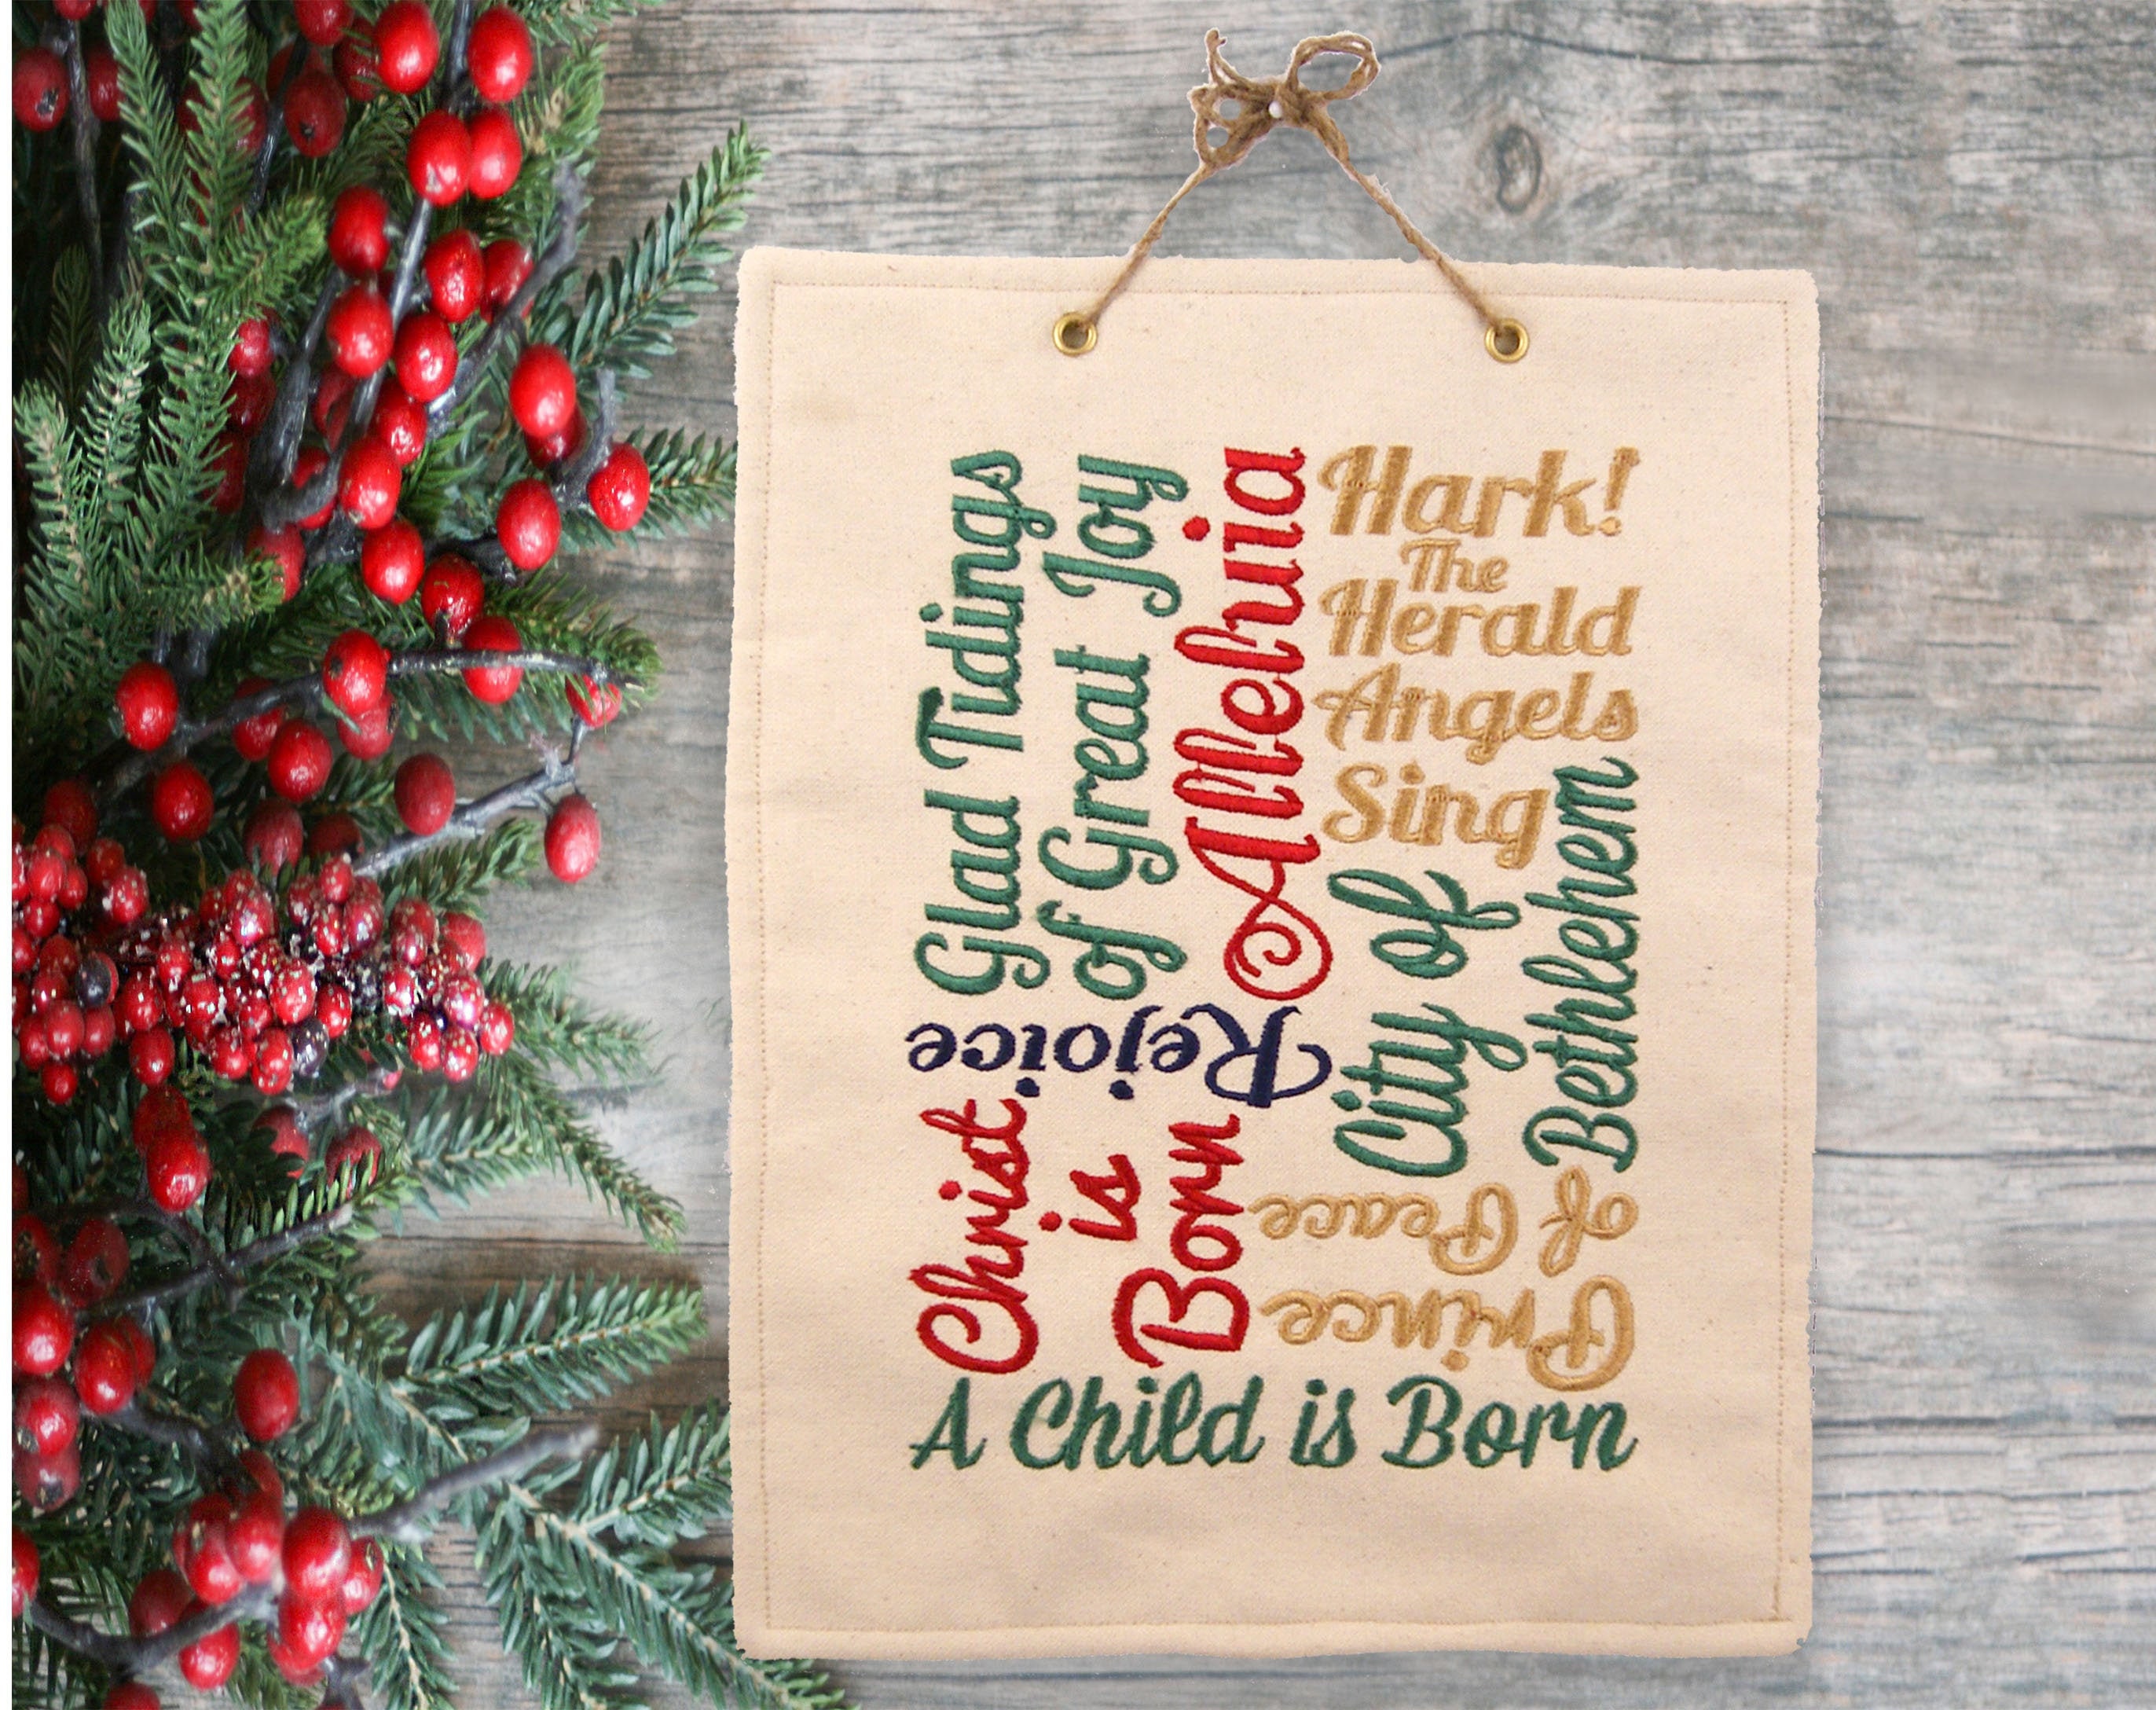 Glad Tidings
of Great Joy
Alleluia
Hark!
The
Herald
Angels
Sing
City of
Bethlehem
Rejoice
Christ
is
Born
Prince
of Peace
A Child is Born